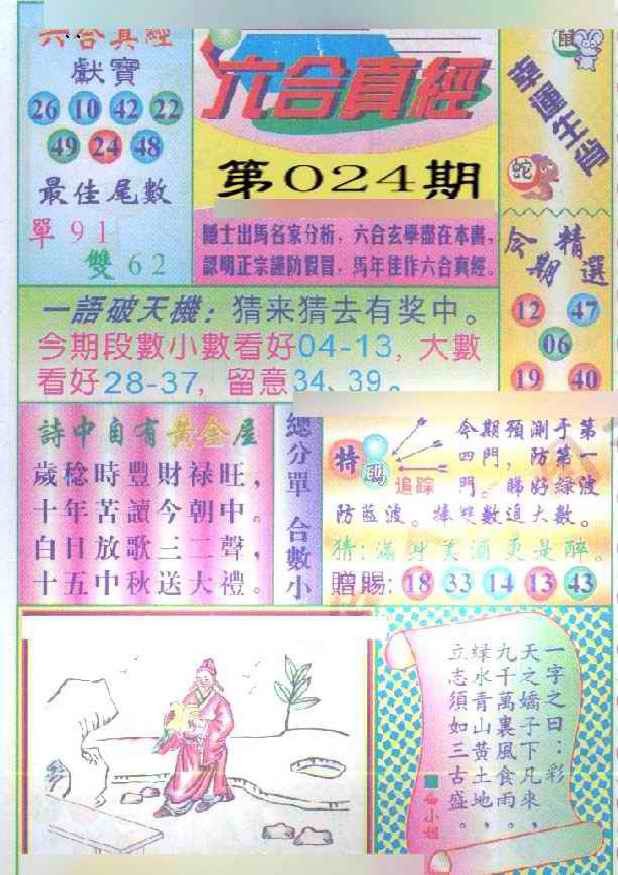 六合真經
獻寶
26 10 42 22
49 24 48
最佳尾數
單 91
雙 62
六合真經
第024期
隱士出馬名家分析,六合玄學盡在本書,
認明正宗謹防假冒,馬年佳作六合真經。
鼠
幸運生肖
蛇
今期精選
12 47
06
19 40
一語破天機:猜来猜去有奖中。
今期段數小數看好04-13,大數
看好28-37,留意34、39。
詩中自有黃金屋
歲稔時豐財禄旺,
十年苦讀今朝中。
白日放歌三二聲,
十五中秋送大禮。
總分單 合數小
特碼
追踪
今期預測于第
四門,防第一
門。睇好緑波
防藍波。捧雙數追大數。
猜:滿身美酒更是醉。
贈賜:18 33 14 13 43
一字之曰:彩
天之嬌子下凡來,
九千萬裏風食雨。
緑水青山黃土地,
立志須如三古盛。
小姐